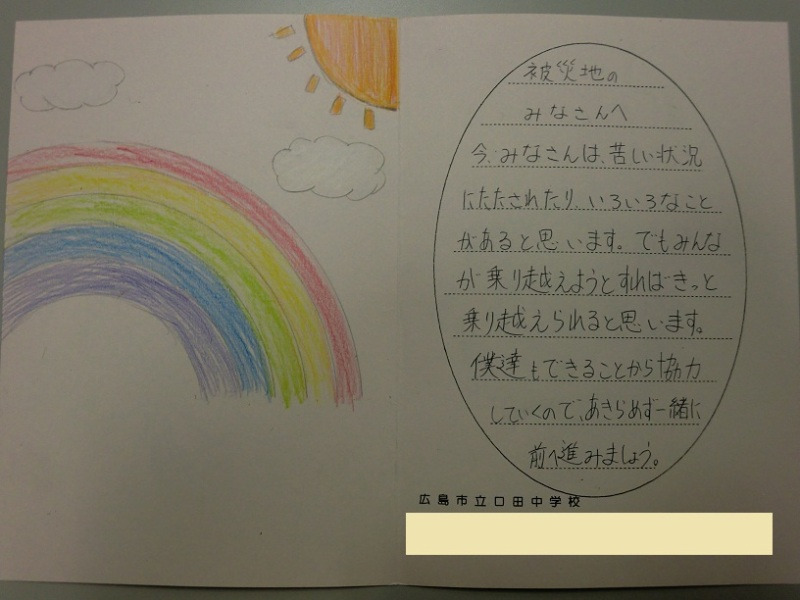 被災地の
みなさんへ
今、みなさんは、苦しい状況
にたたされたり、いろいろなこと
があると思います。でもみんな
が乗り越えようとすればきっと
乗り越えられると思います。
僕達もできることから協力
していくので、あきらめず一緒に
前へ進みましょう。
広島市立口田中学校